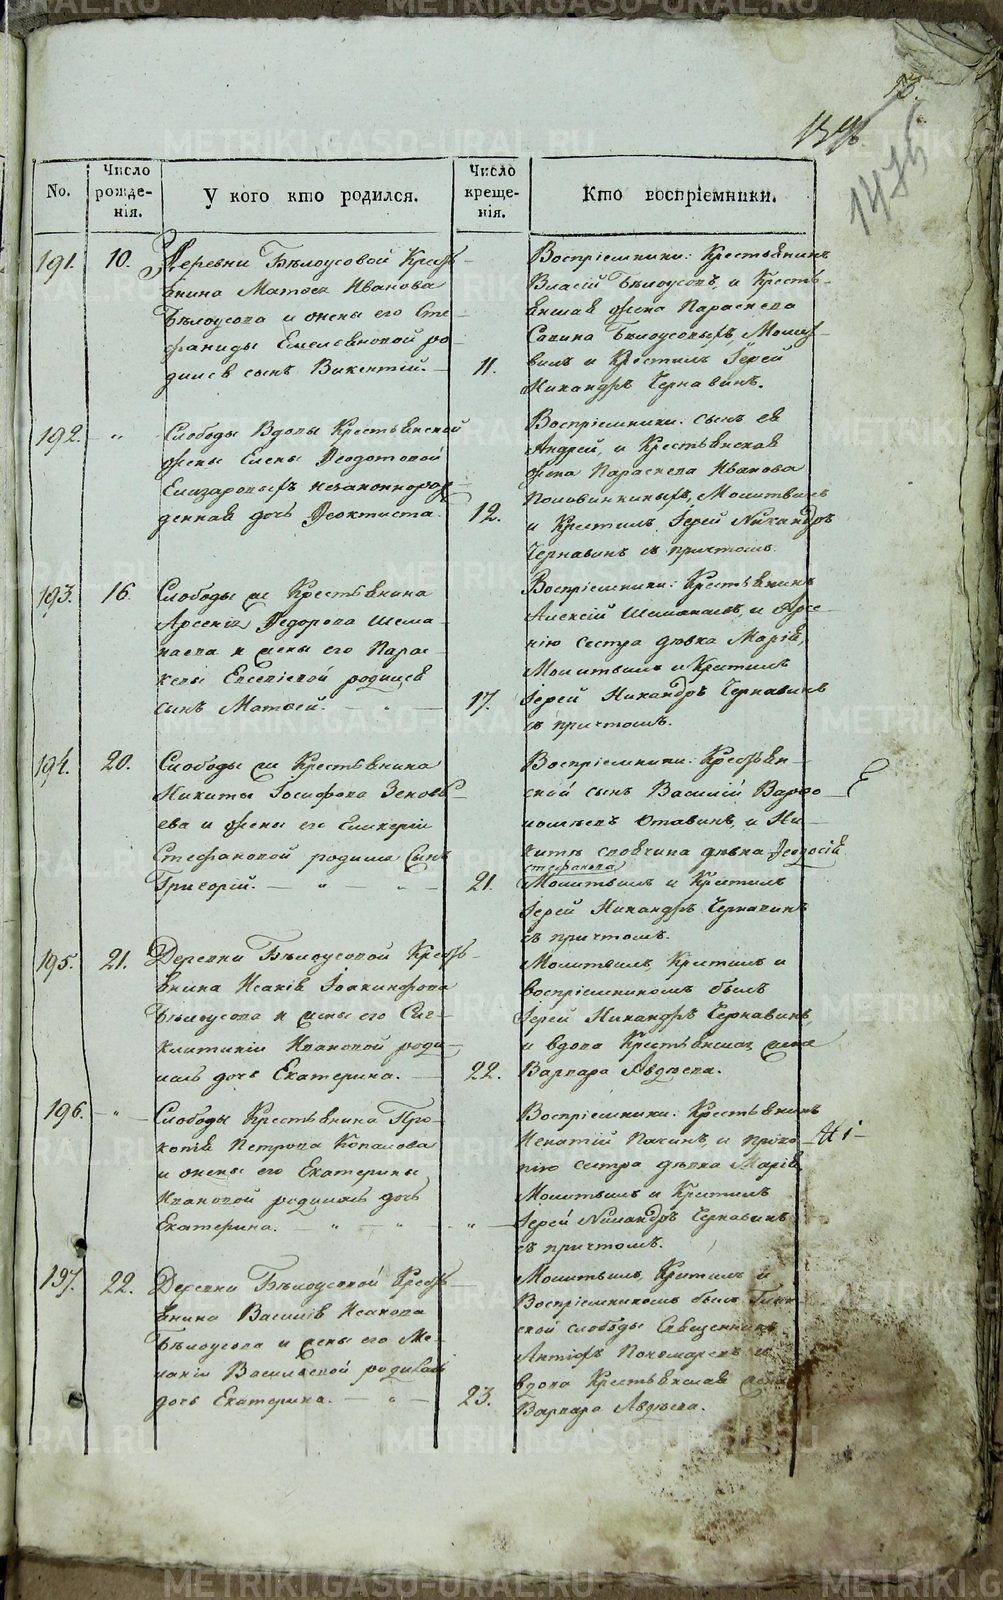 METRIKI.GASO-URAL.RU
13.
1475
No.
Число рожде-нія.
У кого кто родился.
Число креще-нія.
Кто воспріемники.
191.
10.
Деревни Бѣлоусовой Кресть-
янина Матвея Иванова
Бѣлоусова и жены его Сте-
фаниды Емельяновой ро-
дился сынъ Викентій.
11.
Воспріемники: Крестьянинъ
Власій Бѣлоусовъ, и Кресть-
янская жена Параскева
Савина Бѣлоусовыхъ, Молит-
вилъ и Крестилъ Іерей
Никандръ Чернавинъ.
192.
"
Слободы Вдовы Крестьянской
жены Елены Ѳеодотовой
Елизаровыхъ незаконнорож-
денная дочь Ѳеоктиста.
12.
Воспріемники: сынъ ея
Андрей, и Крестьянская
жена Параскева Иванова
Половинкиныхъ, Молитвилъ
и Крестилъ Іерей Никандръ
Чернавинъ съ причтомъ.
193.
16.
Слободы же Крестьянина
Арсенія Ѳедорова Шема-
наева и жены его Парас-
кевы Евсевіевой родился
сынъ Матѳей.
17.
Воспріемники: Крестьянинъ
Алексій Шеманаевъ, и Арсе-
нію сестра дѣвка Марія,
Молитвилъ и Крестилъ
Іерей Никандръ Чернавинъ
съ причтомъ.
194.
20.
Слободы же Крестьянина
Никиты Іосифова Зеновь-
ева и жены его Гликеріи
Стефановой родился Сынъ
Григорій.
21.
Воспріемники: Крестьян-
скій сынъ Василій Варфо-
ломѣевъ Ставинъ, и Ни-
китѣ своячина дѣвка Ѳеодосія
Стефанова
Молитвилъ и Крестилъ
Іерей Никандръ Чернавинъ
съ причтомъ.
195.
21.
Деревни Бѣлоусовой Кресть-
янина Исакія Іоакинфова
Бѣлоусова и жены его Син-
клитикіи Ивановой роди-
лась дочь Екатерина.
22.
Молитвилъ, Крестилъ и
воспріемникомъ былъ
Іерей Никандръ Чернавинъ,
и вдова Крестьянская жена
Варвара Авдѣева.
196.
"
Слободы Крестьянина Про-
копія Петрова Копалова
и жены его Екатерины
Ивановой родилась дочь
Екатерина.
"
Воспріемники: Крестьянинъ
Игнатій Пачинъ, и Проко-
пію сестра дѣвка Марія
Молитвилъ и Крестилъ
Іерей Никандръ Чернавинъ
съ причтомъ.
197.
22.
Деревни Бѣлоусовой Кресть-
янина Василія Исакова
Бѣлоусова и жены его Ме-
ланіи Васильевой родилась
дочь Екатерина.
23.
Молитвилъ, Крестилъ и
Воспріемникомъ былъ
ской слободы Священникъ
Антипъ Пономаревъ и
вдова Крестьянская жена
Варвара Авдѣева.